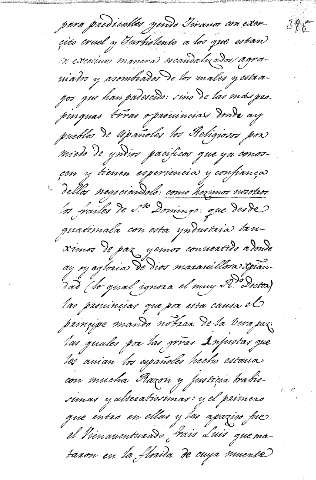 395
para predicalles yendo Tiranos con exer-
çito cruel y Turbulento a los que estan
n excesiua manera scandaliçados agra-
uiados y asombrados de los males y estra-
gos que han padecido: sino de las mas pro-
pinquas trras o prouincias donde ay
pueblos de españoles los Religiosos por
miedo de yndios pacificos que ya conos-
cen y tienen esperiencia y confiança
dellos negociandolo: como hezimos nosotros
los frailes de Sto Domingo, que desde
guatimala con esta yndustria tru-
ximos de paz yemos conuertido adonde
ay oy gloria de dios marauillosa xpan-
dad (lo qual ignora el muy Rdo Doctor)
las prouincias que por esta causa el
principe mando nōbrar de la Vera paz
las quales por las grãs Injustas que
les auian los españoles hecho estaua
con mucha Razon y justiçia brabis-
simas y alteradissimas: y el primero
que entro en ellas y las apaziguo fue
el Bienauenturado frai Luis que ma-
taron en la florida de cuya muerte